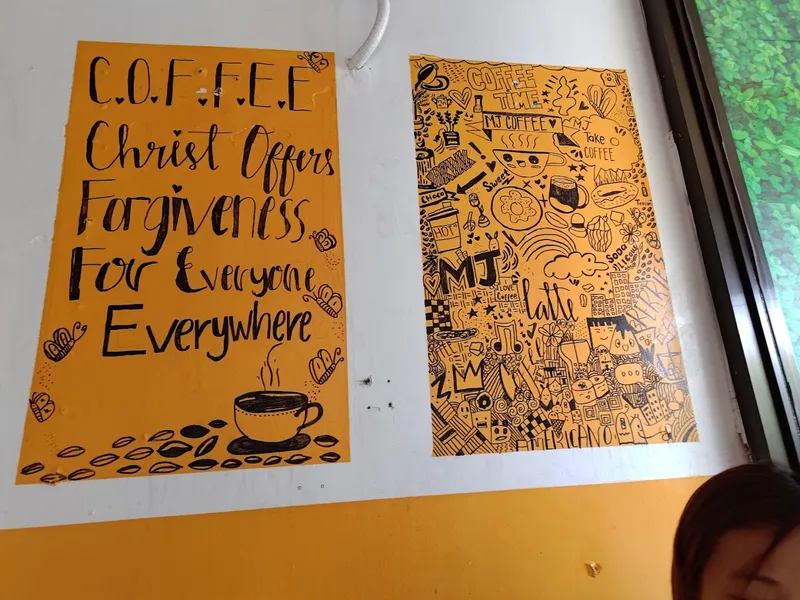 C.O.F.F.E.E
Christ Offers
Forgiveness
For Everyone
Everywhere
COFFEE
TIME
MJ COFFEE
MJ
Take
COFFEE
Sweet
CHOCO
HOT
Sooo
MJ
Coffee
latte
AMERICANO